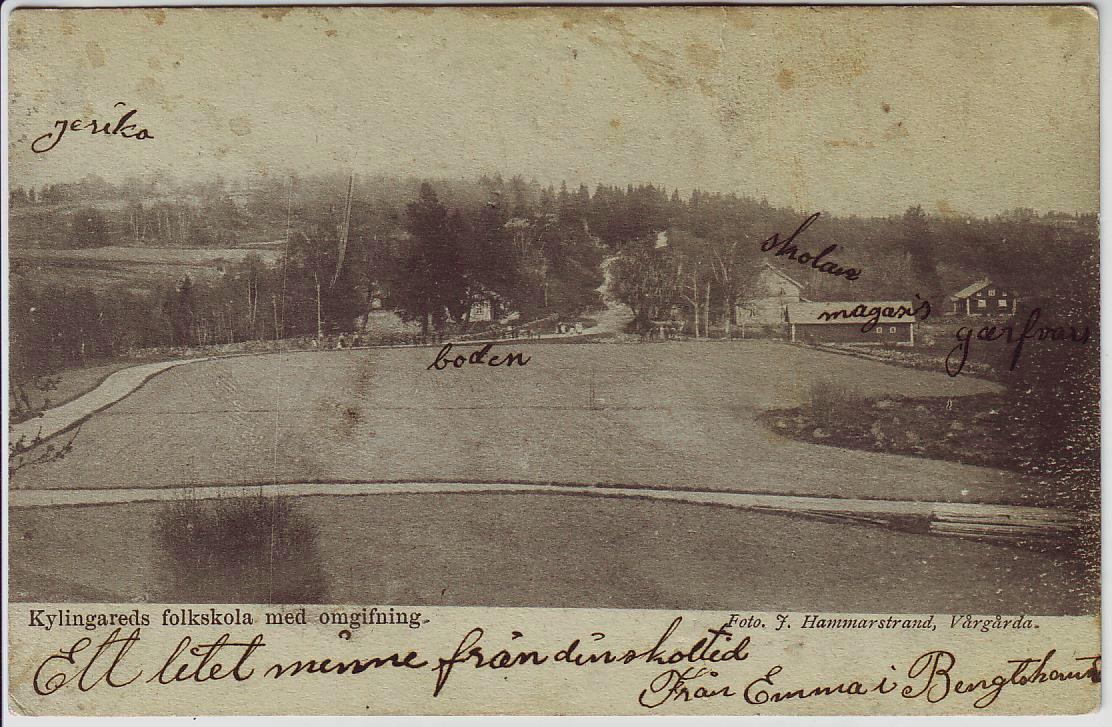 jeriko
skolan
magasis
gærfvars
boden
Kylingareds folkskola med omgifning.
Foto. J. Hammarstrand, Vårgårda.
Ett litet minne från din skoltid
Från Emma i